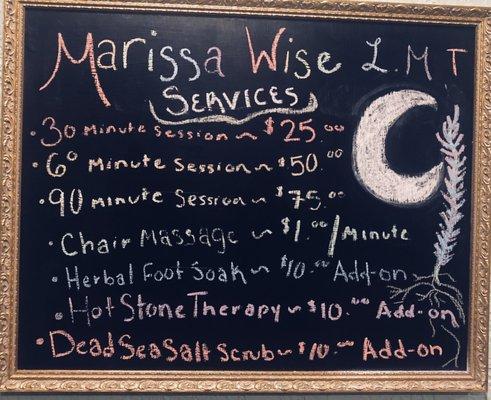 Marissa Wise L.M.T
Services
· 30 Minute Session ~ $25.00
· 60 Minute Session ~ $50.00
· 90 minute Session ~ $75.00
· Chair Massage ~ $1.00/Minute
· Herbal Foot Soak ~ $10.00 Add-on
· Hot Stone Therapy ~ $10.00 Add-on
· Dead Sea Salt Scrub ~ $10.00 Add-on